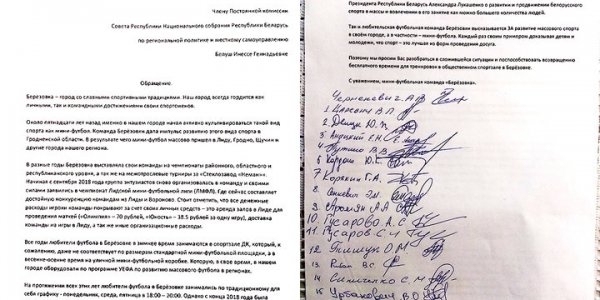 Члену Постоянной комиссии
Совета Республики Национального собрания Республики Беларусь
по региональной политике и местному самоуправлению
Белуш Инессе Геннадьевне
Обращение
Березовка – город со славными спортивными традициями. Наш город всегда гордился как
личными, так и командными достижениями своих спортсменов.
Около пятнадцати лет назад именно в нашем городе начал активно культивироваться такой вид
спорта как мини-футбол. Команда Березовки дала импульс развитию этого вида спорта в
Гродненской области. В результате чего мини-футбол массово пришел в Лиду, Гродно, Щучин и
другие города нашего региона.
В разные годы Березовка выставляла свои команды на чемпионаты районного, областного и
республиканского уровня, а так же на межотраслевые турниры за «Стеклозавод «Неман».
Начиная с сентября 2018 года группа энтузиастов снова организовалась в команду и своими
силами заявились в чемпионат Лидской мини-футбольной лиги (ЛМФЛ). Где сейчас составляет
достойную конкуренцию командам из Лиды и Вороново. Стоит отметить, что все денежные
расходы игроки команды покрывают за счет своих личных средств – это аренда залов в Лиде для
проведения матчей («Олимпия» – 70 рублей, «Юность» – 38.5 рублей за одну игру), доставка
команды из Игры в Лиду, а так же иные организационные расходы.
Все годы любители футбола в Березовке в зимнее время занимаются в спортзале ДК, который, к
сожалению, даже не соответствует по размерам стандартной мини-футбольной площадки, а в
весеннее-летнее время они занимаются в аварийной коробке. Которую, в свое время, в нашем
городе оборудовали по программе УЕФА по развитию массового футбола в регионах.
На протяжении всех этих лет любители футбола в Березовке занимались по традиционному для
себя графику - понедельник, среда, пятница в 18:00 – 20:00. Однако с конца 2018 года была
Президента Республики Беларусь Александра Лукашенко о развитии и продвижении белорусского
спорта в массы и вовлечения в его занятие как можно большего количества людей.
Так и любительская футбольная команда Березовки высказывается ЗА развитие массового спорта
в своем городе, а в частности – мини-футбола. Каждый раз своим примером доказывая детям и
молодежи, что спорт – это лучшая из форм проведения досуга.
Поэтому мы просим Вас разобраться в сложившейся ситуации и поспособствовать возвращению
бесплатного времени для тренировок в общественном спортзале в Березовке.
С уважением, мини-футбольная команда «Березовка».
1
2
3
4
5
6
7
8
9
10. Гусарова А. С
11. Гусаров С. И
12
13
14
15